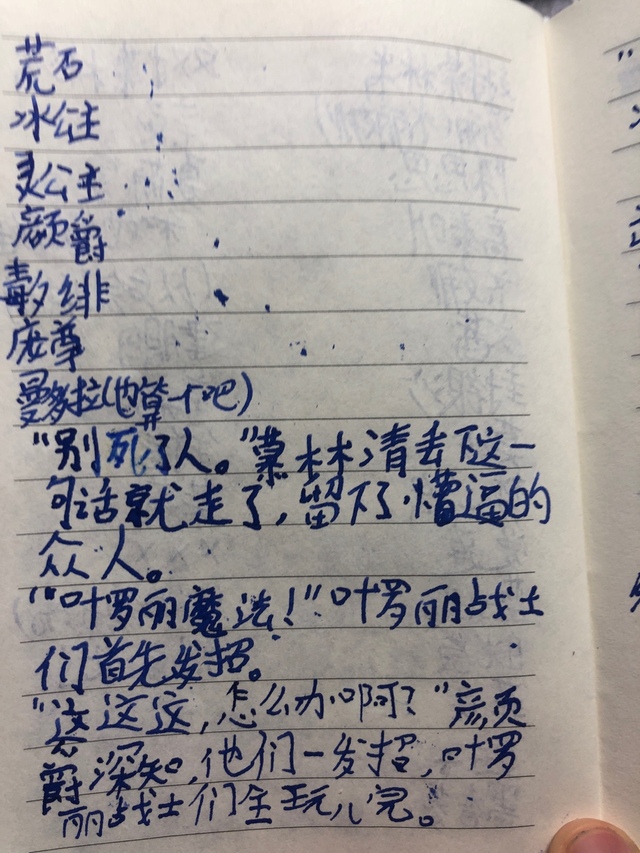 荒石
冰公主
灵公主
颜爵
毒夕绯
庞尊
曼多拉(也算个吧)
“别死了人。”慕林清丢下这一
句话就走了,留下了懵逼的
众人。
“叶罗丽魔法!”叶罗丽战士
们首先发招。
“这这这,怎么办啊?”颜
爵深知,他们一发招,叶罗
丽战士们全玩儿完。